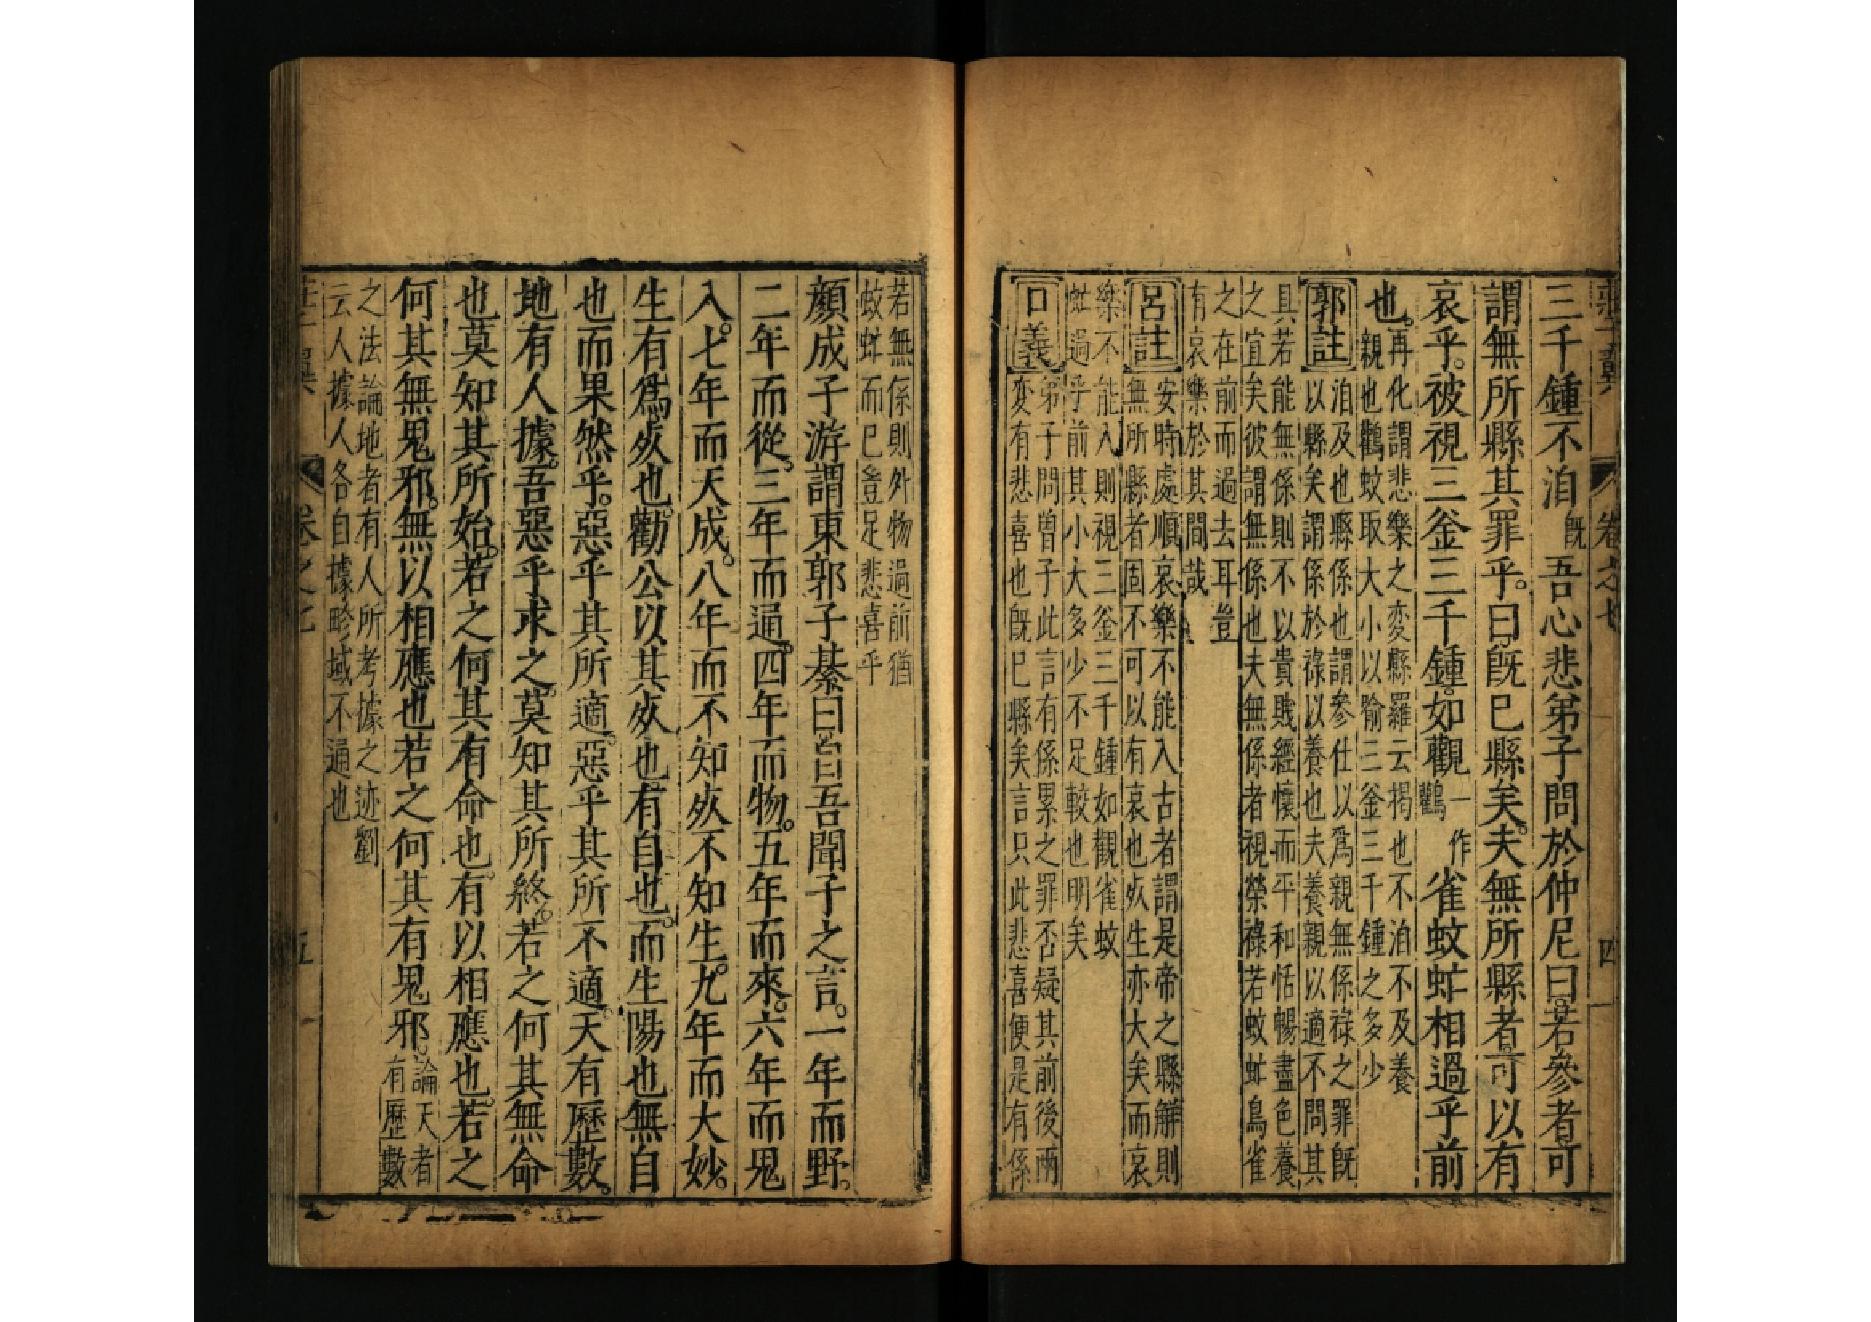 三千鍾不洎旣吾心悲弟子問於仲尼曰若參者可
謂無所縣其罪乎曰旣巳縣矣夫無所縣者可以有
哀乎被視三釜三千鍾如觀一作鸛雀蚊虻相過乎前
也再化謂悲樂之変縣羅云揭也不洎不及養
親也鸛蚊取大小以喻三釜三千鍾之多少
郭註洎及也縣係也謂參仕以爲親無係祿之罪旣
以縣矣謂係於祿以養也夫養親以適不問其
具若能無係則不以貴賤經懷而平和恬暢盡色養
之宜矣彼謂無係也夫無係者視榮祿若蚊虻鳥雀
之在前而過去耳豈
有哀樂於其間哉
呂註安時處順哀樂不能入古者謂是帝之縣解則
無所縣者固不可以有哀也㱙生亦大矣而哀
樂不能入則視三釜三千鍾如觀雀蚊
虻過乎前其小大多少不足較也明矣
口義弟子問曾子此言有係累之罪否疑其前後兩
変有悲喜也旣巳縣矣言只此悲喜便是有係
若無係則外物過前猶
蚊虻而巳豈足悲喜乎
顔成子游謂東郭子綦曰自吾聞子之言一年而野
二年而從三年而通四年而物五年而來六年而鬼
入七年而天成八年而不知㱙不知生九年而大妙
生有爲㱙也勸公以其㱙也有自也而生陽也無自
也而果然乎惡乎其所適惡乎其所不適天有歷數
地有人據吾惡乎求之莫知其所終若之何其無命
也莫知其所始若之何其有命也有以相應也若之
何其無鬼邪無以相應也若之何其有鬼邪論天者
有歷數
之法論地者有人所考據之迹劉
云人據人各自據畛域不通也
莊子翼 卷之七 四
卷之七 五